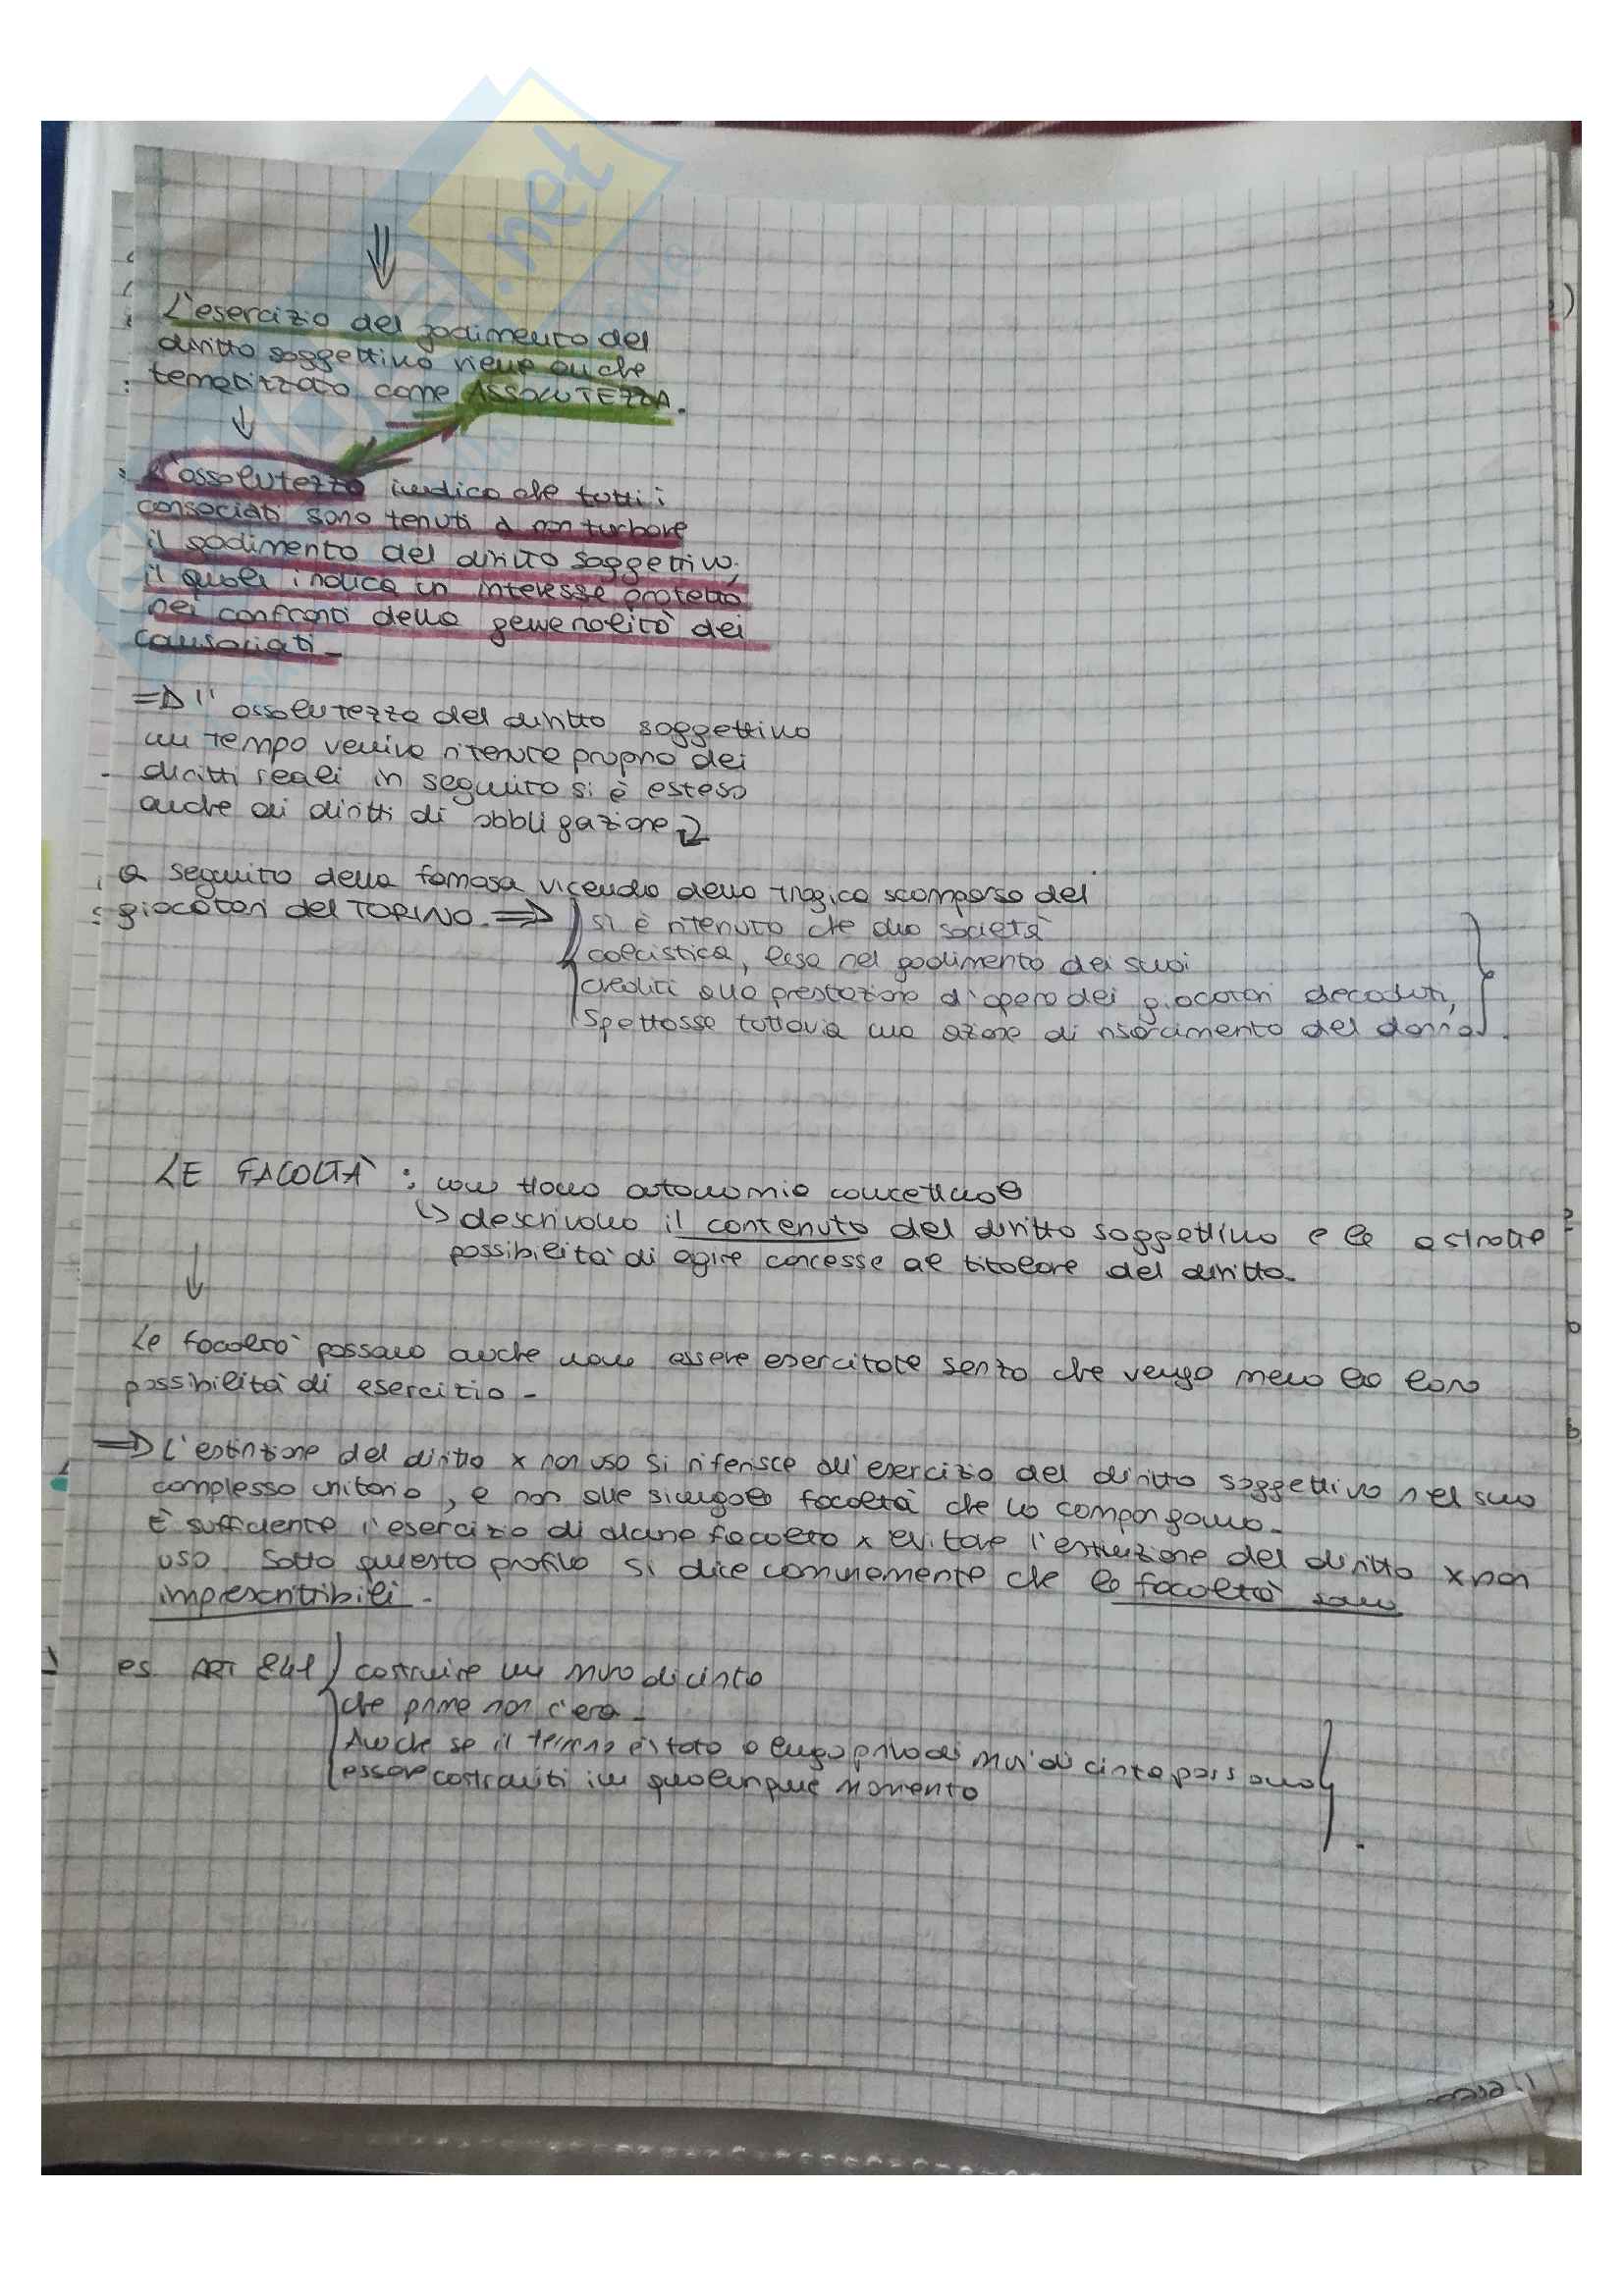 .net
L'esercizio del godimento del
diritto soggettivo viene anche
tematizzato come ASSOLUTEZZA.
L'assolutezza indica che tutti i
consociati sono tenuti a non turbare
il godimento del diritto soggettivo,
il quale indica un interesse protetto
nei confronti della generalità dei
consociati.
=> l'assolutezza del diritto soggettivo
un tempo veniva ritenuta proprio dei
diritti reali in seguito si è esteso
anche ai diritti di obbligazione
a seguito della famosa vicenda della tragica scomparsa dei
giocatori del TORINO. => si è ritenuto che la società
calcistica, lesa nel godimento dei suoi
crediti alla prestazione d'opera dei giocatori deceduti,
Spettasse tuttavia una azione di risarcimento del danno.
LE FACOLTÀ : non hanno autonomia concettuale
↳ descrivono il contenuto del diritto soggettivo e le astratte
possibilità di agire concesse al titolare del diritto.
Le facoltà possono anche non essere esercitate senza che venga meno la loro
possibilità di esercizio -
=> L'estinzione del diritto x non uso si riferisce all'esercizio del diritto soggettivo nel suo
complesso unitario, e non alle singole facoltà che lo compongono.
È sufficiente l'esercizio di alcune facoltà x evitare l'estinzione del diritto x non
uso. Sotto questo profilo si dice comunemente che le facoltà sono
imprescrittibili.
es. ART 841 costruire un muro di cinta
che prima non c'era -
Anche se il terreno è stato a lungo privo di muri di cinta possono
essere costruiti in qualunque momento